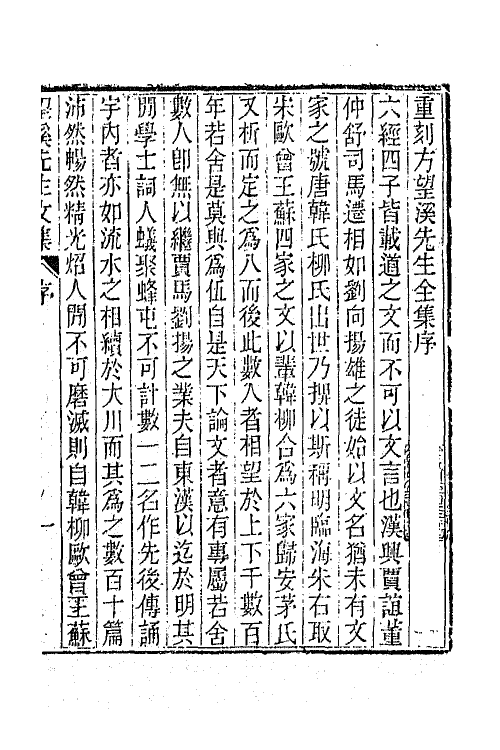 重刻方望溪先生全集序
六經四子皆載道之文而不可以文言也漢興賈誼董
仲舒司馬遷相如劉向揚雄之徒始以文名猶未有文
家之號唐韓氏柳氏出世乃撰以斯稱明臨海朱右取
宋歐曾王蘇四家之文以輩韓柳合爲六家歸安茅氏
又析而定之爲八而後此數人者相望於上下千數百
年若舍是莫與爲伍自是天下論文者意有專屬若舍
數人卽無以繼賈馬劉揚之業夫自東漢以迄於明其
閒學士詞人蟻聚蜂屯不可計數一二名作先後傳誦
宇內者亦如流水之相續於大川而其爲之數百十篇
沛然暢然精光炤人閒不可磨滅則自韓柳歐曾王蘇
望溪先生文集 序 一